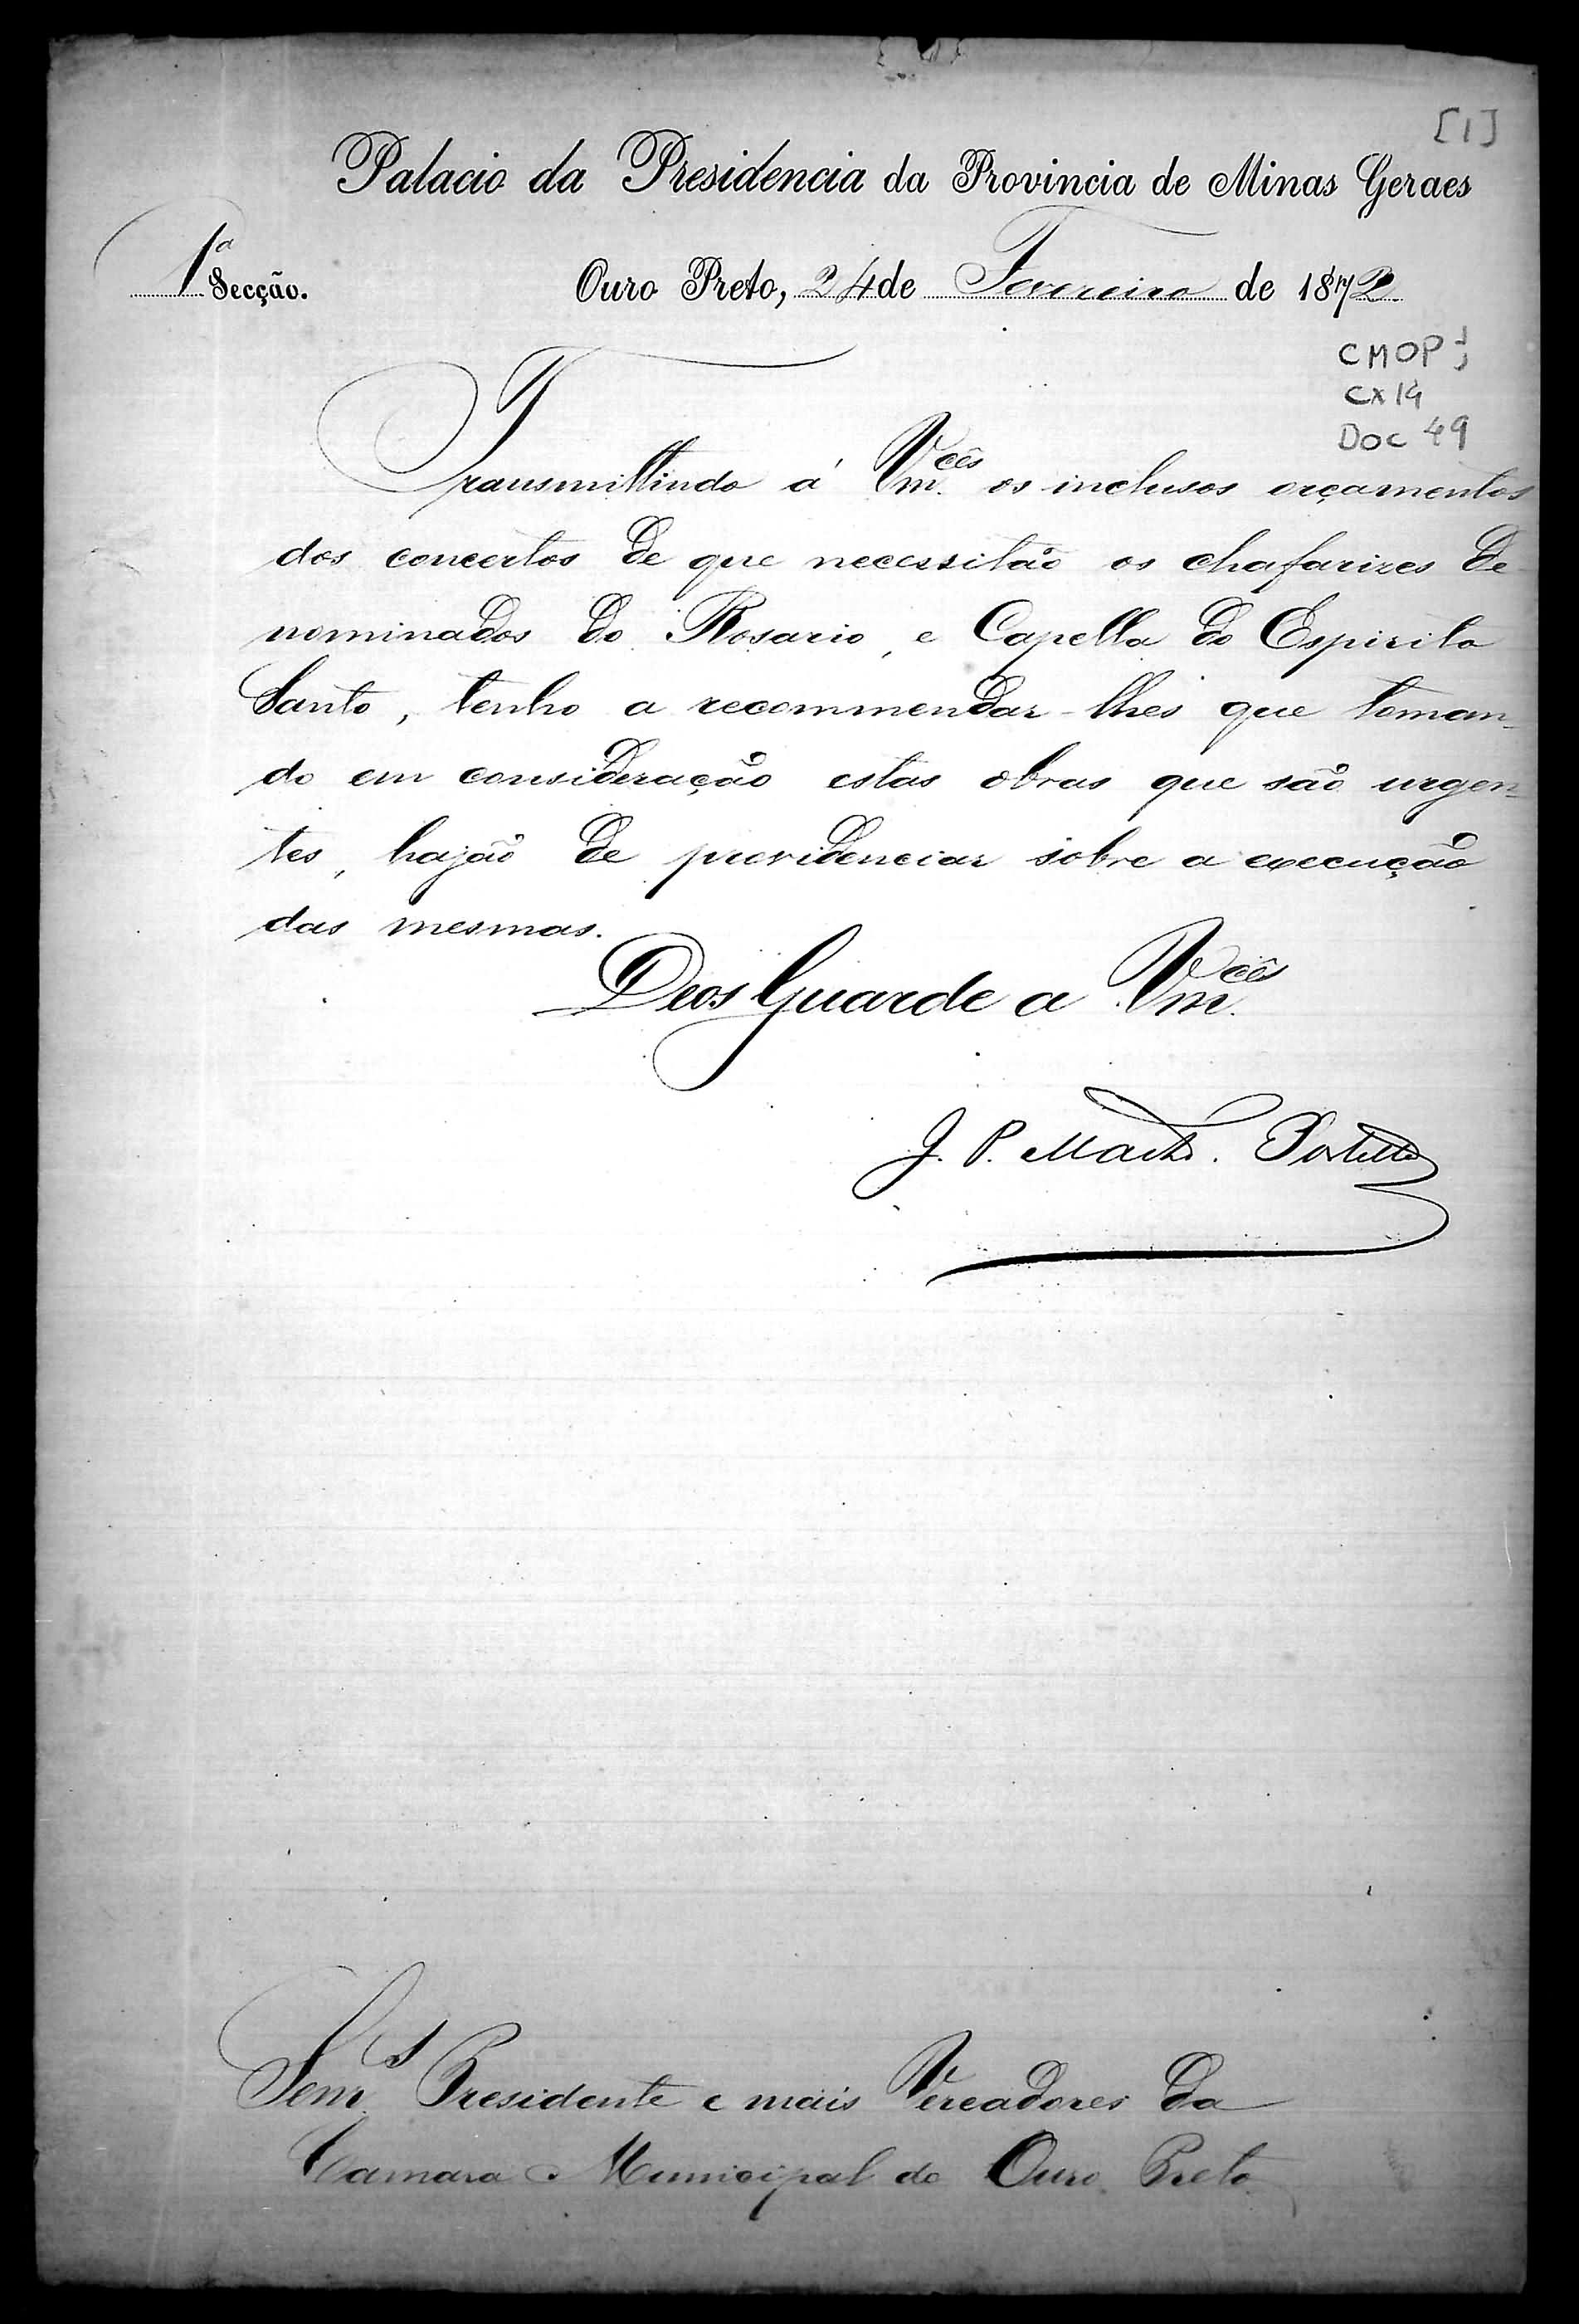 [1]
Palacio da Presidencia da Provincia de Minas Geraes
1ª Secção.
Ouro Preto, 24 de Fevereiro de 1872
CMOP
CX 14
DOC 49
Transmittindo á Vm.cês os inclusos orçamentos
dos concertos de que necessitão os chafarizes de
nominados do Rosario, e Capella do Espirito
Santo, tenho a recommendar-lhes que toman-
do em consideração estas obras que são urgen-
tes, hajão de providenciar sobre a execução
das mesmas.
Deos Guarde a Vm.cês
J. P. Machº. Portella
Senrs. Presidente e mais Vereadores da
Camara Municipal do Ouro Preto